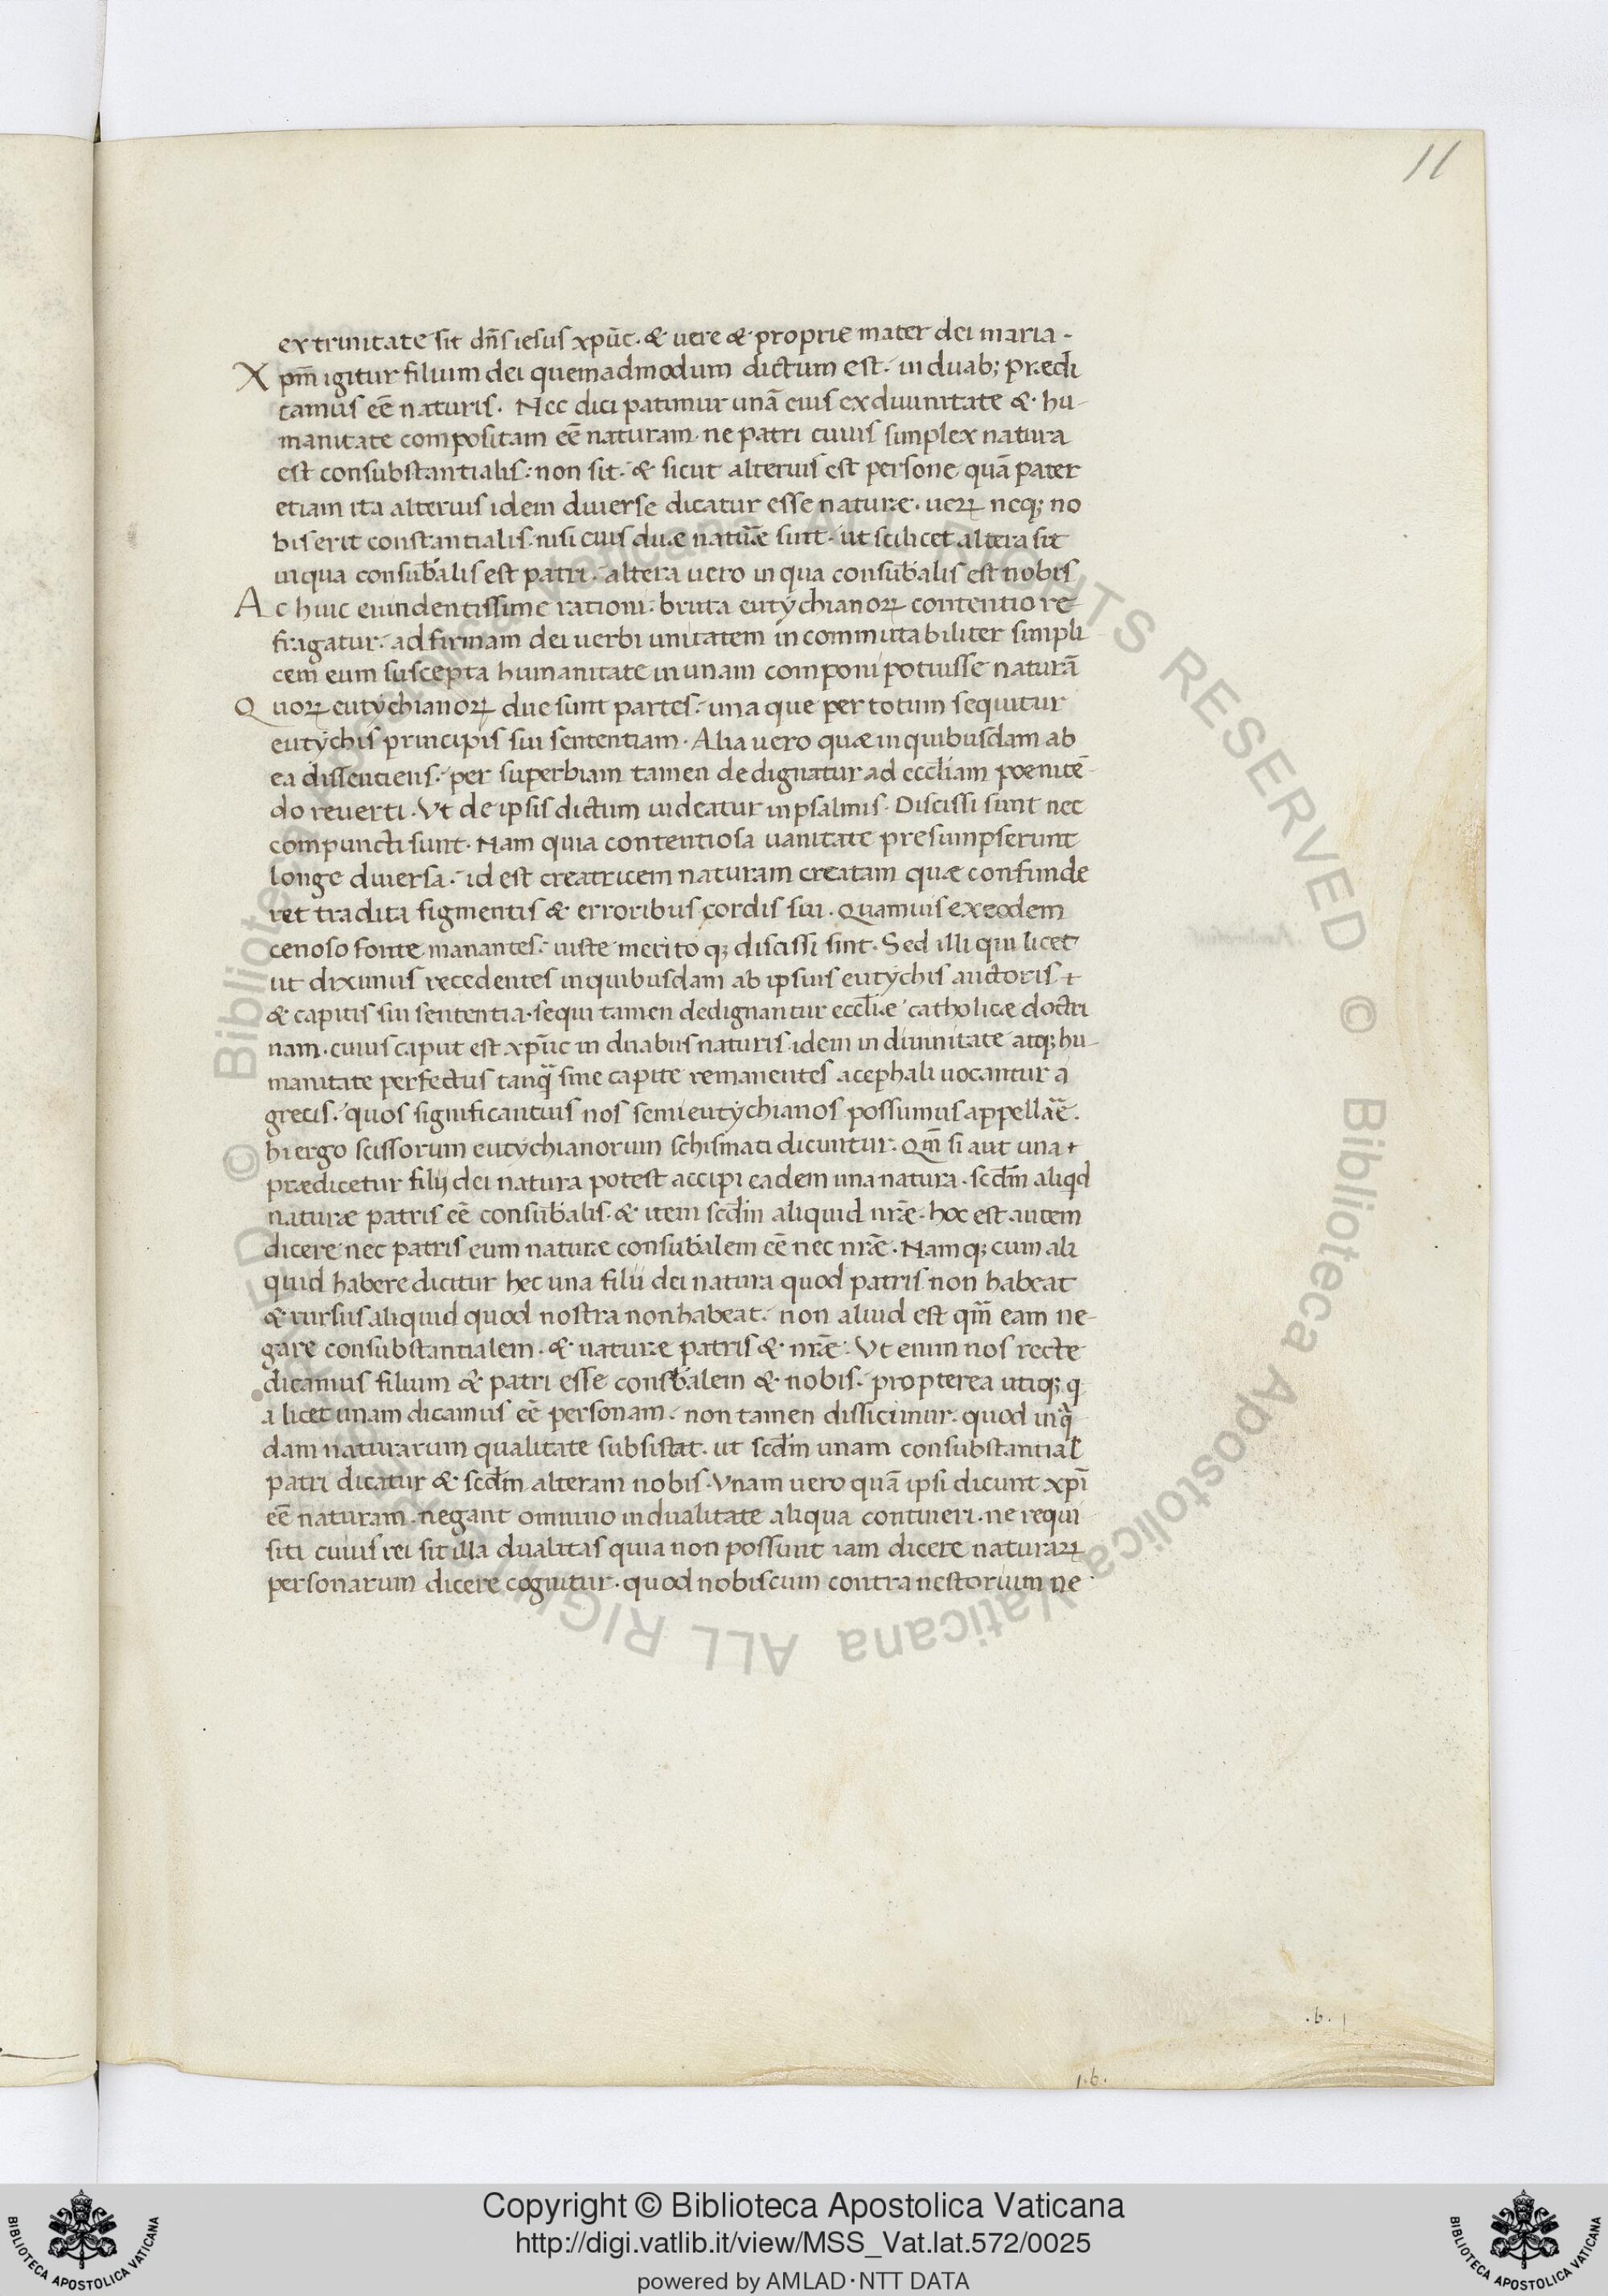 11
ex trinitate sit dñs iesus xpūc. & uere & proprie mater dei maria -
X pm̄ igitur filium dei quemadmodum dictum est. in duab; prædi
camus eē naturis. Nec dici patimur unā eius ex diuinitate & hu-
manitate compositam eē naturam. ne patri cuius simplex natura
est consubstantialis: non sit. & sicut alterius est persone quā pater
etiam ita alterius idem diuerse dicatur esse naturæ. ueꝝ neq; no
bis erit constantialis. nisi cuis duæ natūæ sint. ut scilicet altera sit
in qua consub̄alis est patri. altera uero in qua consub̄alis est nobis
A c huic euindentissime rationi: bruta eutychianoꝝ contentio re
fragatur. ad firmam dei uerbi unitatem incommutabiliter simpli
cem eum suscepta humanitate in unam componi potuisse naturā
Q uoꝝ eutychianoꝝ due sunt partes: una que per totum sequitur
eutychis principis sui sententiam. Alia uero quæ in quibusdam ab
ea dissentiens. per superbiam tamen dedignatur ad eccl̄iam poenitē-
do reuerti. Vt de ipsis dictum uideatur in psalmis. Discissi sunt nec
compuncti sunt. Nam quia contentiosa uanitate presumpserunt
longe diuersa. id est creatricem naturam creatam quæ confunde
ret tradita figmentis & erroribus cordis sui. Quamuis ex eodem
cenoso fonte manantes: iuste merito q; discissi sint. Sed illi qui licet
ut diximus recedentes in quibusdam ab ipsius eutychis auctoris +
& capitis sui sententia. sequi tamen dedignantur eccl̄iæ catholicæ doctri
nam. cuius caput est xpūc in duabus naturis idem in diuinitate atq; hu-
manitate perfectus tanq̄ sine capite remanentes acephali uocantur a
grecis. quos significantius nos semieutychianos possumus appellāe.
hi ergo scissorum eutychianorum schismati dicuntur. Qm̄ si aut una +
prædicetur filij dei natura potest accipi eadem una natura. scd̄m aliqd
naturæ patris eē consub̄alis. & item scd̄m aliquid nr̄æ. hoc est autem
dicere nec patris eum naturæ consub̄alem eē nec nr̄æ. Namq; cum ali
quid habere dicitur hec una filii dei natura quod patris non habeat
& rursus aliquid quod nostra non habeat. non aliud est qm̄ eam ne-
gare consubstantialem. & naturæ patris & nr̄æ: Vt enim nos recte
dicamus filium & patri esse consb̄alem & nobis. propterea utiq; q
a licet unam dicamus eē personam. non tamen dissicimur. quod in q̄
dam naturarum qualitate subsistat. ut scd̄m unam consubstantial̄
patri dicatur & scd̄m alteram nobis. Vnam uero quā ipsi dicunt xp̄i
eē naturam. negant omnino in dualitate aliqua contineri. ne requi
siti cuius rei sit illa dualitas quia non possunt iam dicere naturaꝝ
personarum dicere cognitur. quod nobiscum contra nestorium ne
.b.
1.b.
© Biblioteca Apostolica Vaticana ALL RIGHTS RESERVED © Biblioteca Apostolica Vaticana ALL RIGHTS RESERVED
Copyright © Biblioteca Apostolica Vaticana
http://digi.vatlib.it/view/MSS_Vat.lat.572/0025
powered by AMLAD·NTT DATA
BIBLIOTECA APOSTOLICA VATICANA
BIBLIOTECA APOSTOLICA VATICANA